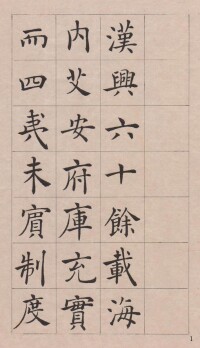 漢興六十餘載海
內艾安府庫充實
而四夷未賓制度
1